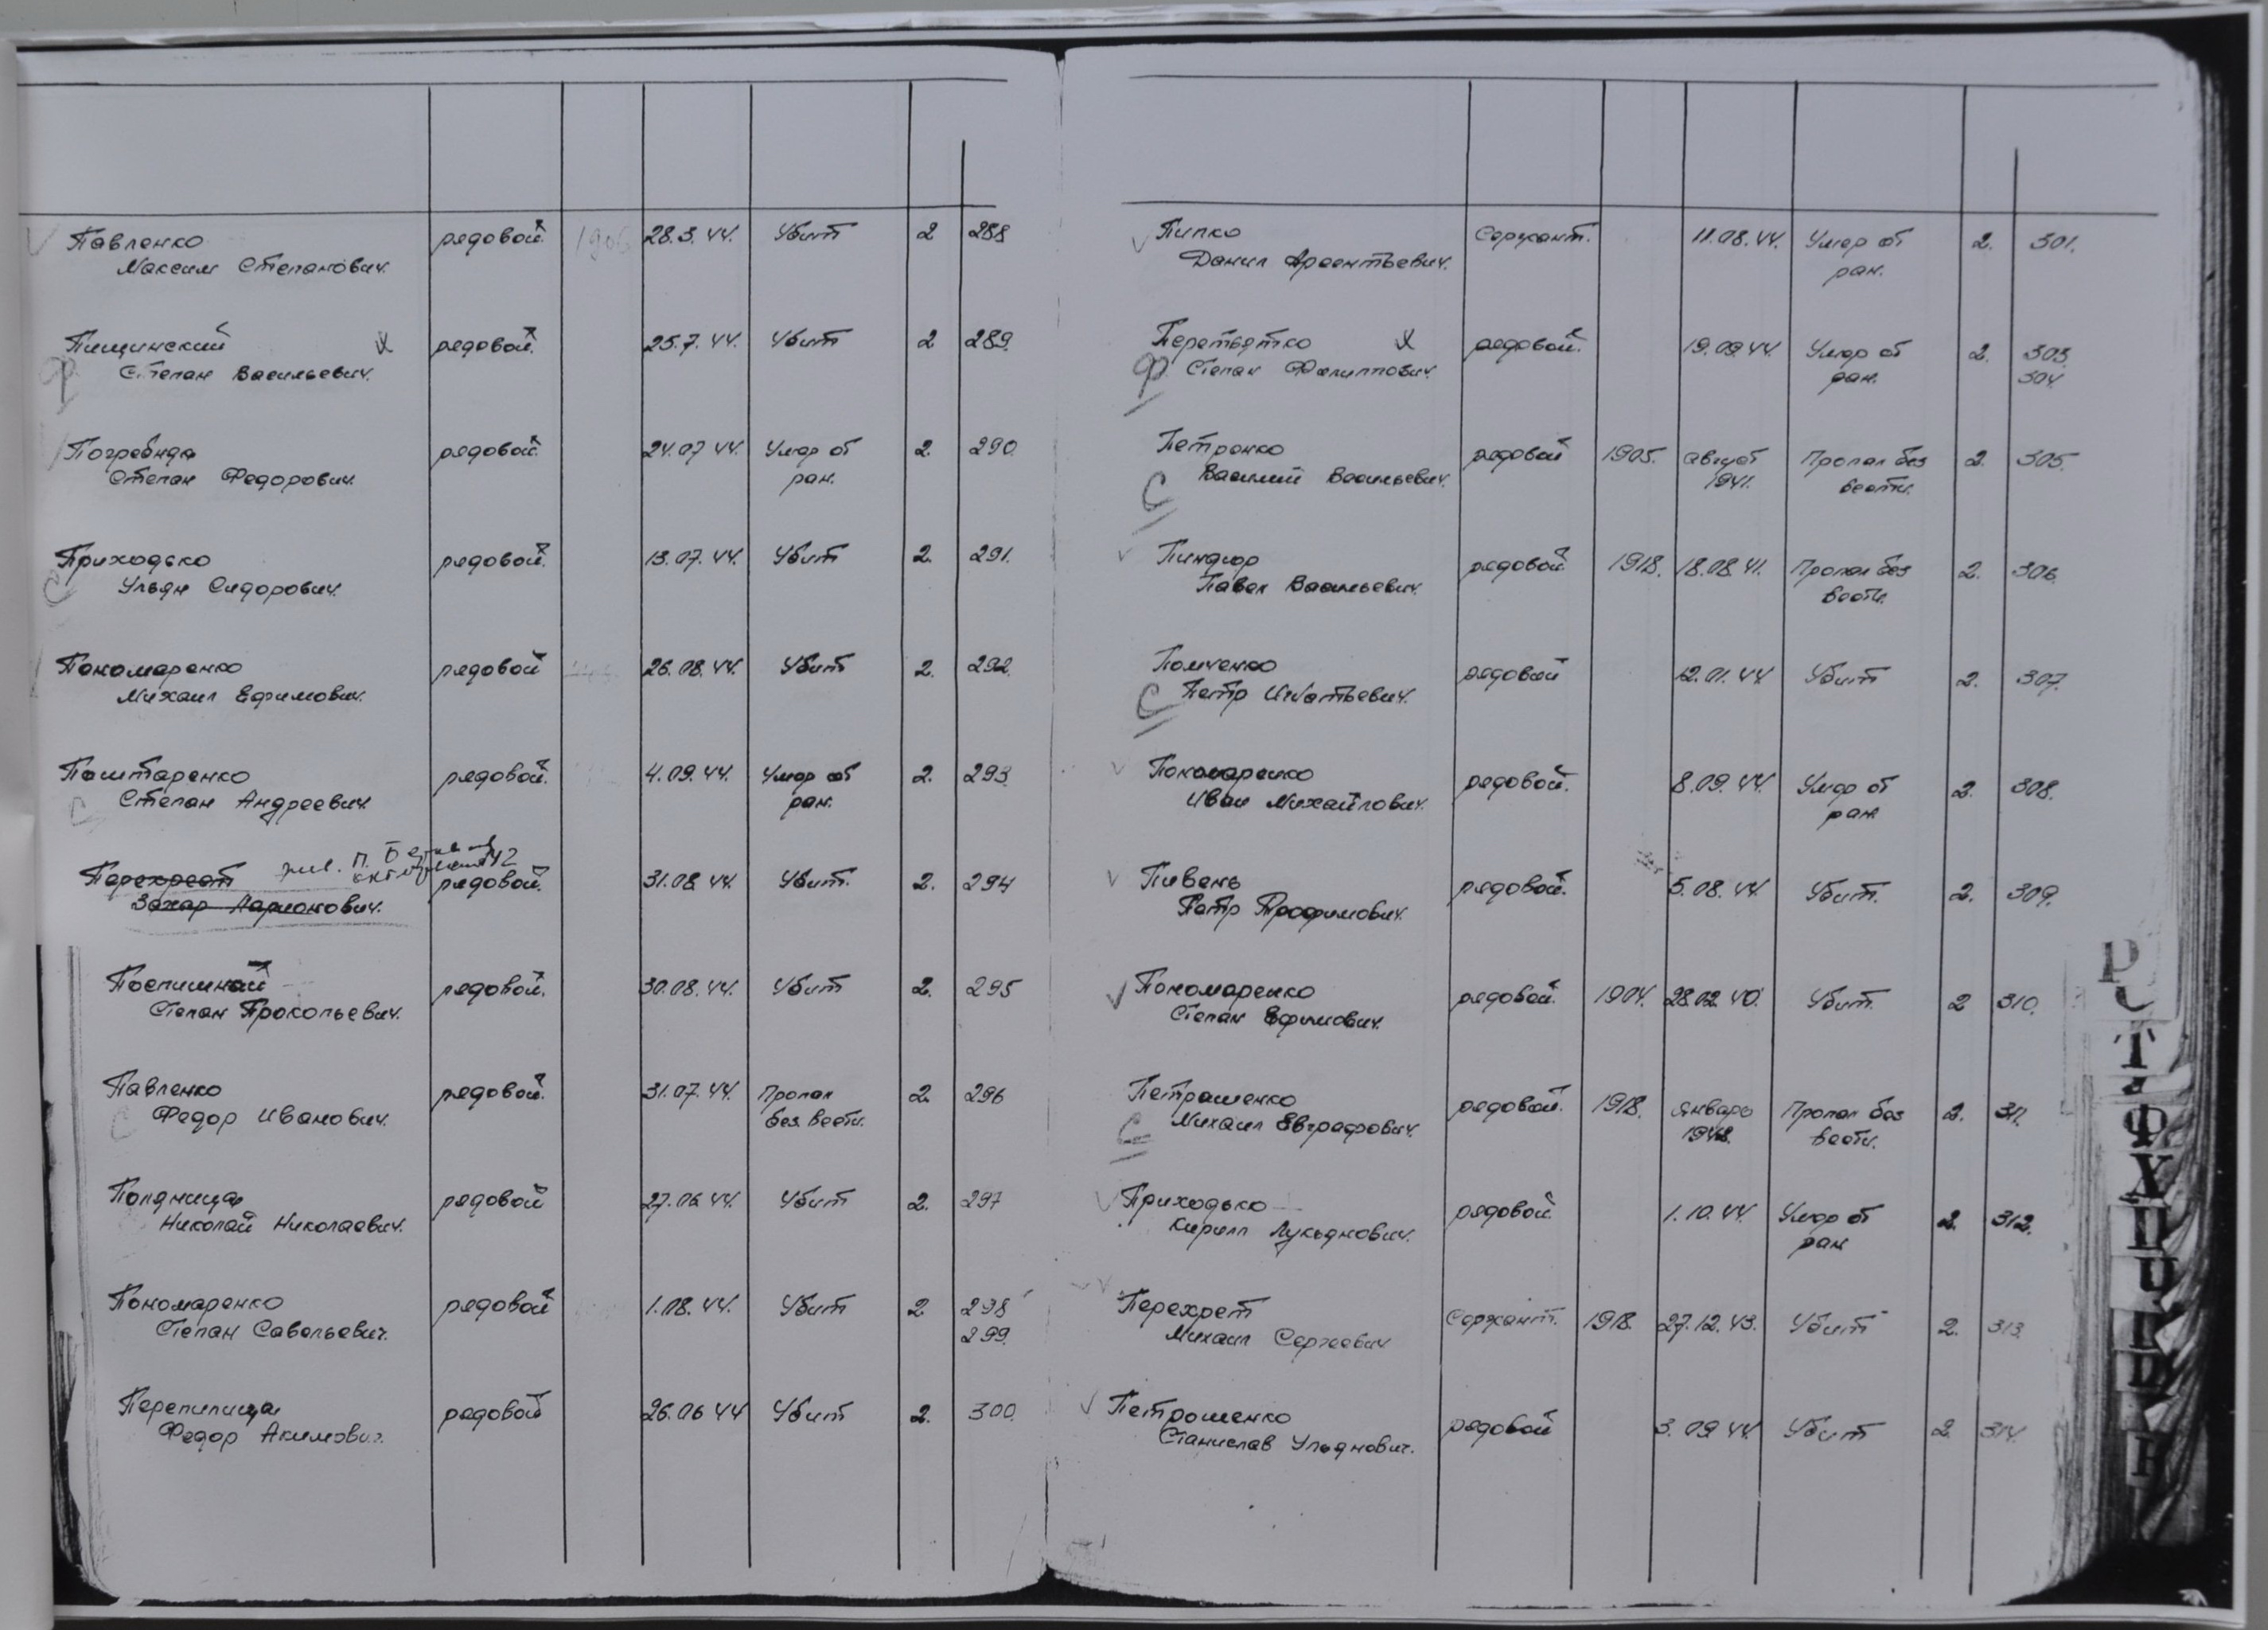 Павленко рядовой. 1906 28.3.44. Убит 2 288
Максим Степанович.
Пищинский х рядовой. 25.7.44. Убит 2 289.
Ф Степан Васильевич.
Погребняк рядовой. 24.07.44. Умер от 2. 290.
Степан Федорович. ран.
Приходько рядовой. 13.07.44. Убит 2. 291.
С Ульян Сидорович.
Пономаренко рядовой 26.08.44. Убит 2. 292.
Михаил Ефимович.
Поштаренко рядовой. 4.09.44. Умер от 2. 293.
С Степан Андреевич. ран.
жив. п.
Перехрест рядовой. 31.08.44. Убит. 2. 294
Захар Ларионович.
Поспишной рядовой. 30.08.44. Убит 2. 295
Степан Прокопьевич.
Павленко рядовой. 31.07.44. Пропал 2. 296
С Федор Иванович. без вести.
Поляница рядовой 27.06.44. Убит 2. 297
Николай Николаевич.
Пономаренко рядовой 1.08.44. Убит 2. 298
Степан Савельевич. 299.
Перепилица рядовой 26.06.44 Убит 2. 300.
Федор Акимович.
Пипко Сержант. 11.08.44. Умер от 2. 301.
Данил Арсентьевич. ран.
Перетятко х рядовой. 19.09.44. Умер от 2. 303.
Ф Степан Филиппович. ран. 304.
Петренко рядовой 1905. август Пропал без 2. 305.
С Василий Васильевич. 1941. вести.
Пиндюр рядовой 1918. 18.08.41. Пропал без 2. 306.
Павел Васильевич. вести.
Помченко рядовой 12.01.44. Убит 2. 307.
С Петр Игнатьевич.
Пономаренко рядовой. 8.09.44. Умер от 2. 308.
Иван Михайлович. ран.
Пивень рядовой. 5.08.44. Убит. 2. 309.
Петр Трофимович.
Пономаренко рядовой. 1904. 28.02.40. Убит. 2 310.
Степан Ефимович.
Петрашенко рядовой. 1918. январь Пропал без 2. 311.
С Михаил Евграфович. вести.
Приходько рядовой. 1.10.44. Умер от 2. 312.
Кирилл Лукьянович. ран
Перехрест Сержант. 1918. 27.12.43. Убит 2. 313.
Михаил Сергеевич
Петрошенко рядовой 3.09.44. Убит 2. 314.
Станислав Ульянович.
Р
С
Т
Ф
Х
Ц